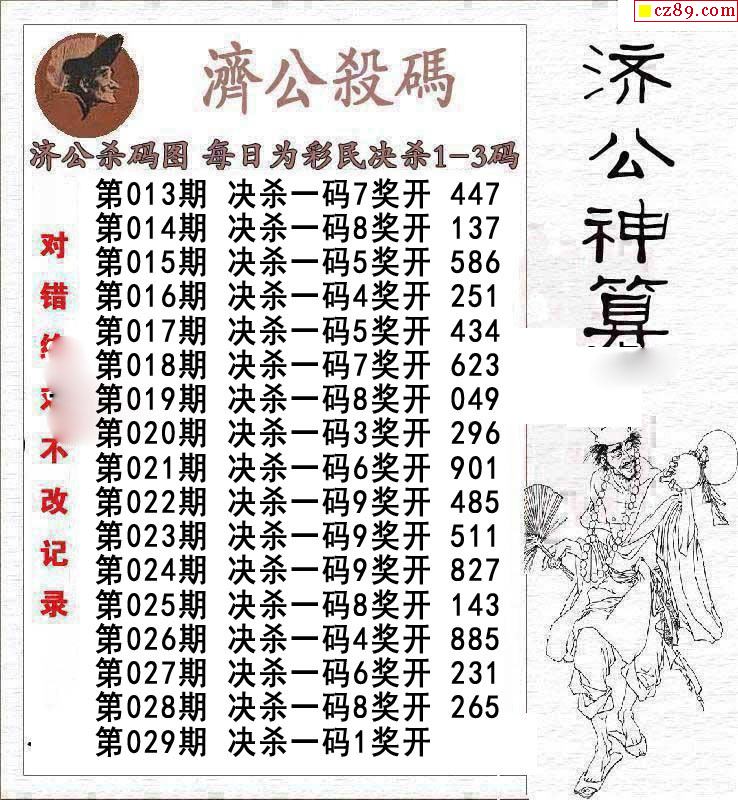 cz89.com
濟公殺碼
济公杀码图 每日为彩民决杀1-3码
第013期 决杀一码7奖开 447
第014期 决杀一码8奖开 137
第015期 决杀一码5奖开 586
第016期 决杀一码4奖开 251
第017期 决杀一码5奖开 434
第018期 决杀一码7奖开 623
第019期 决杀一码8奖开 049
第020期 决杀一码3奖开 296
第021期 决杀一码6奖开 901
第022期 决杀一码9奖开 485
第023期 决杀一码9奖开 511
第024期 决杀一码9奖开 827
第025期 决杀一码8奖开 143
第026期 决杀一码4奖开 885
第027期 决杀一码6奖开 231
第028期 决杀一码8奖开 265
第029期 决杀一码1奖开
对错不改记录
济公神算